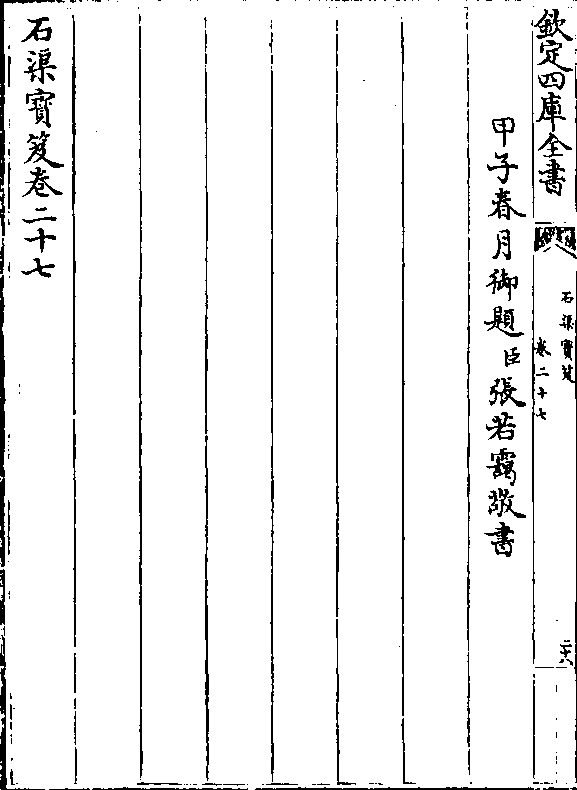 欽定四庫全書
石渠寶笈
卷二十七
二十八
甲子春月御題臣張若靄敬書
石渠寶笈卷二十七